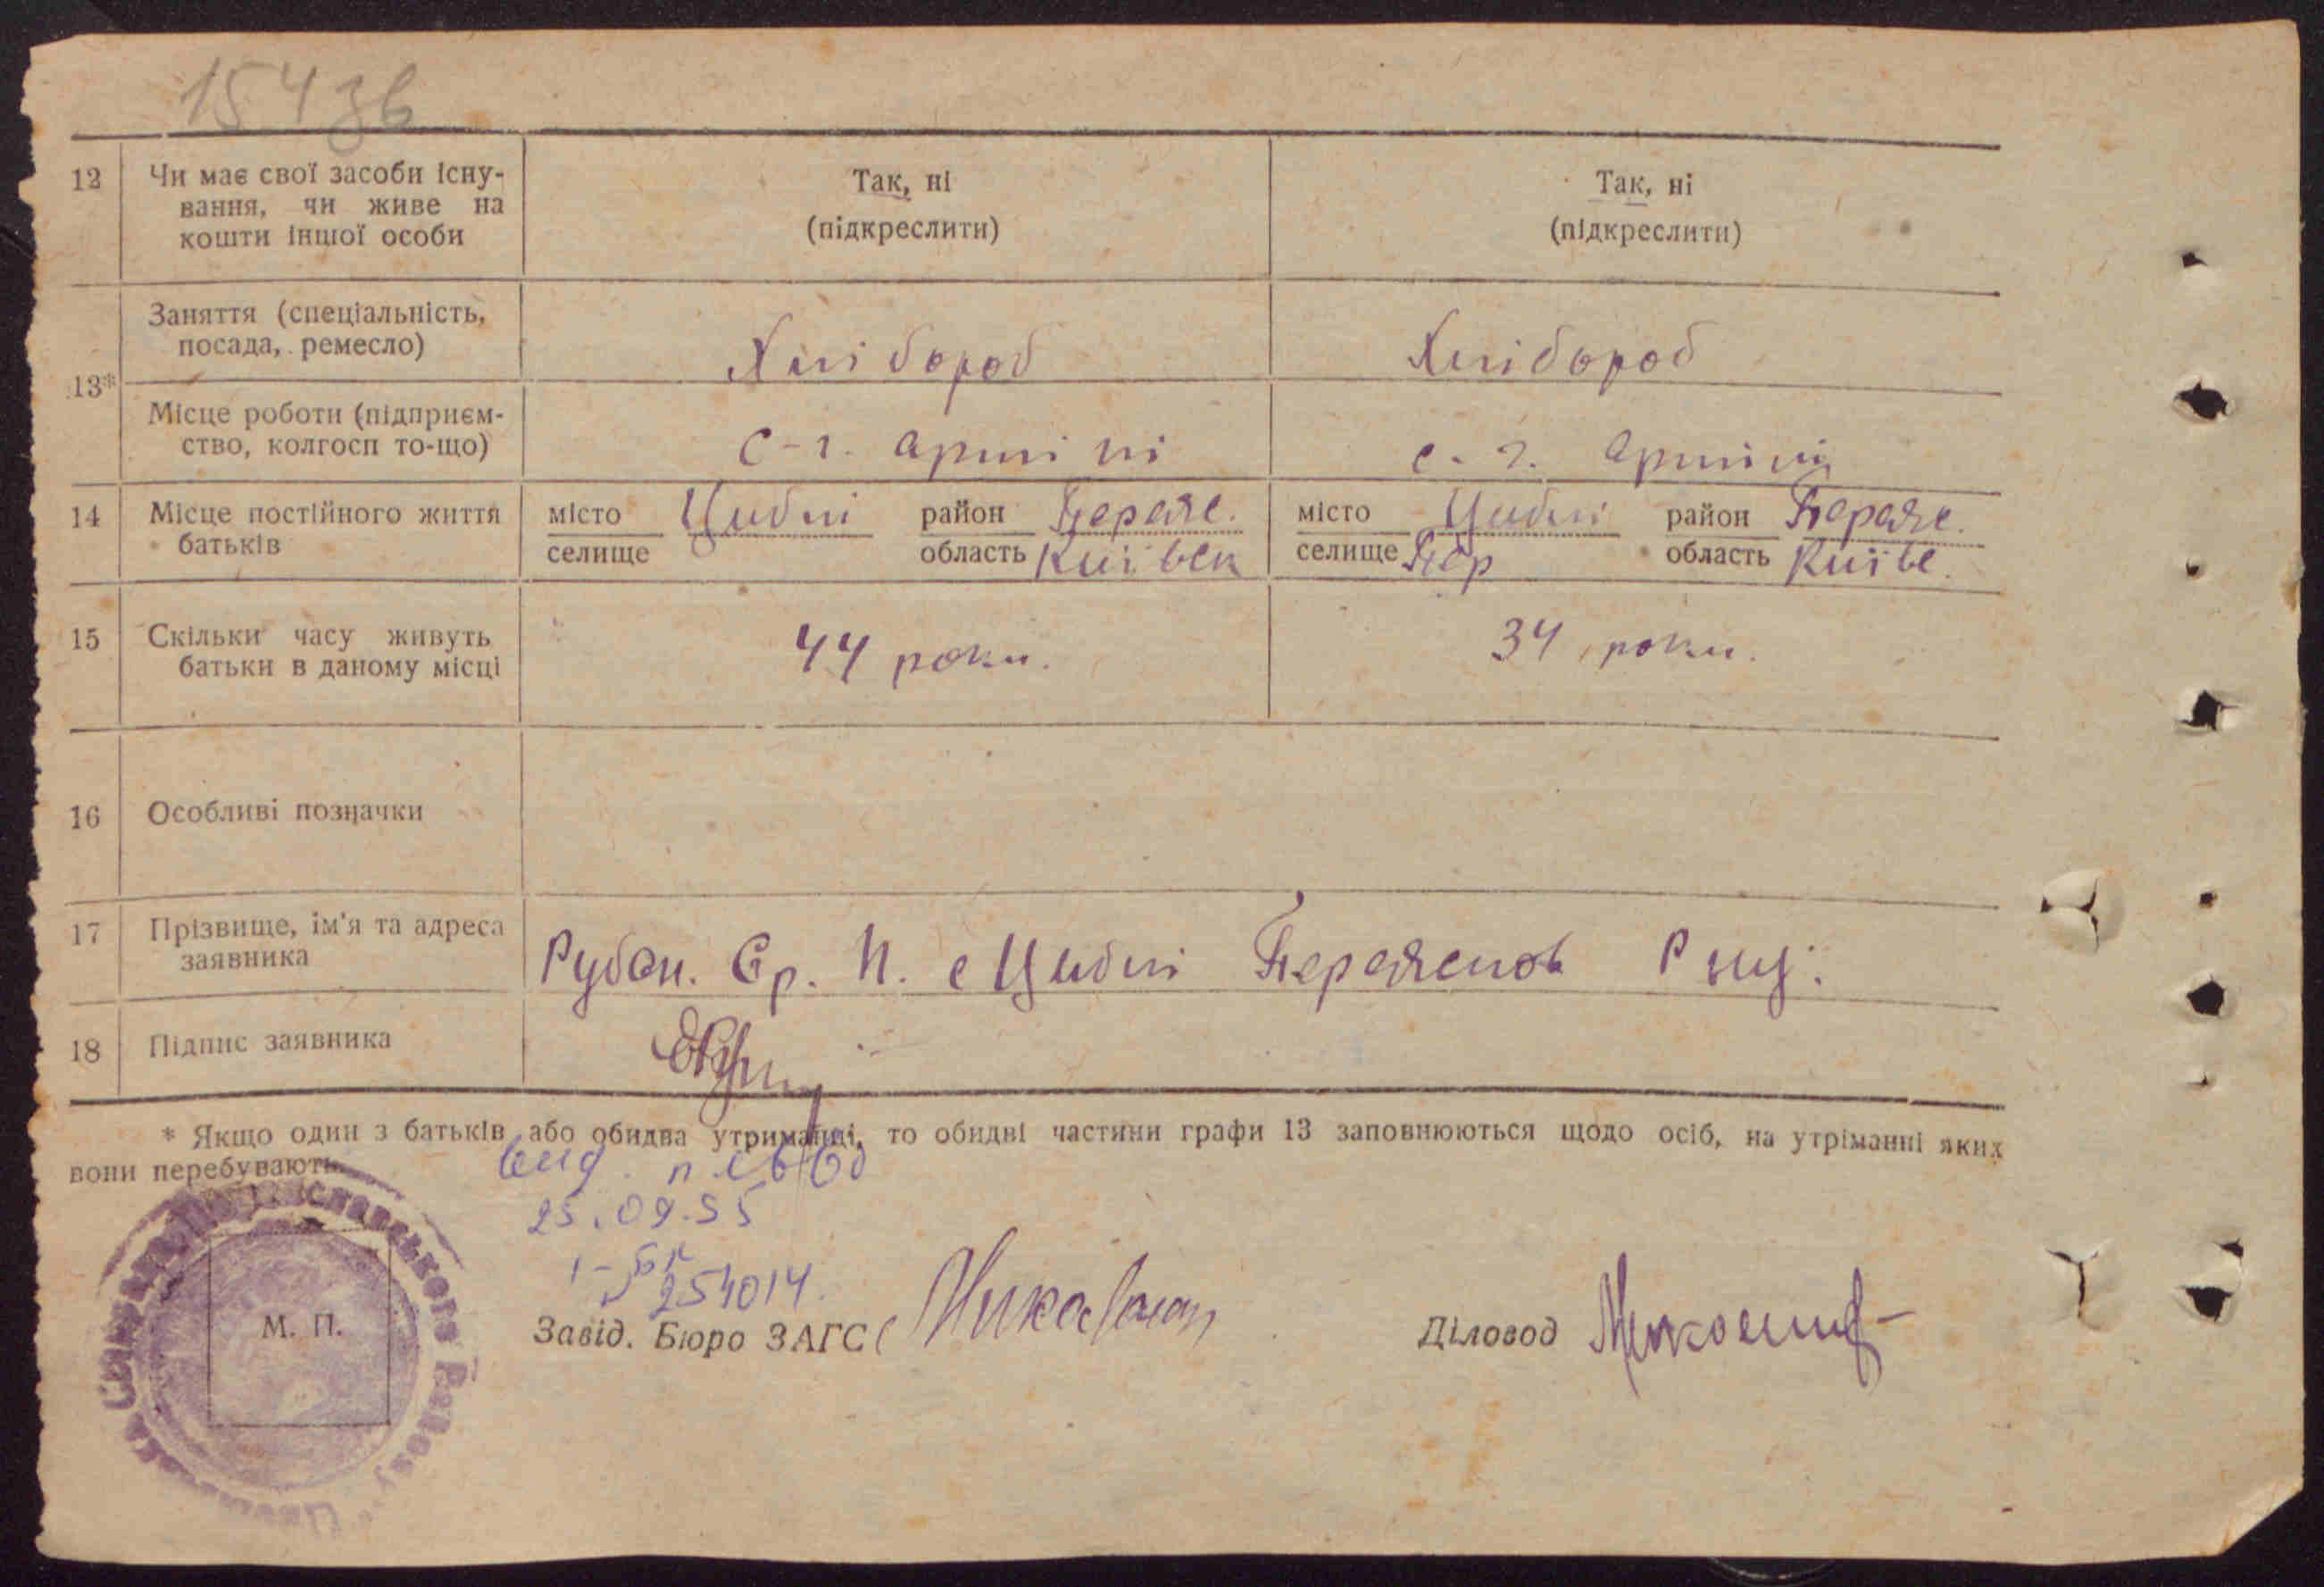 154зв
12 Чи має свої засоби існу-
вання, чи живе на
кошти іншої особи
Так, ні
(підкреслити)
Так, ні
(підкреслити)
13*
Заняття (спеціальність,
посада, ремесло)
Хлібороб
Хлібороб
Місце роботи (підприєм-
ство, колгосп то-що)
с-г. артілі
с. г. артілі
14 Місце постійного життя
батьків
місто Циблі район Переяс.
селище область Київск
місто Циблі район Переяс.
селище Пер область Київс.
15 Скільки часу живуть
батьки в даному місці
44 роки.
34 роки.
16 Особливі позначки
17 Прізвище, ім'я та адреса
заявника
Рубан. Єр. П. с Циблі Переяслов
18 Підпис заявника
* Якщо один з батьків або обидва утриманці, то обидві частини графи 13 заповнюються щодо осіб, на утріманні яких
вони перебувають.
25.09.55
254014.
М. П.
Завід. Бюро ЗАГС
Діловод